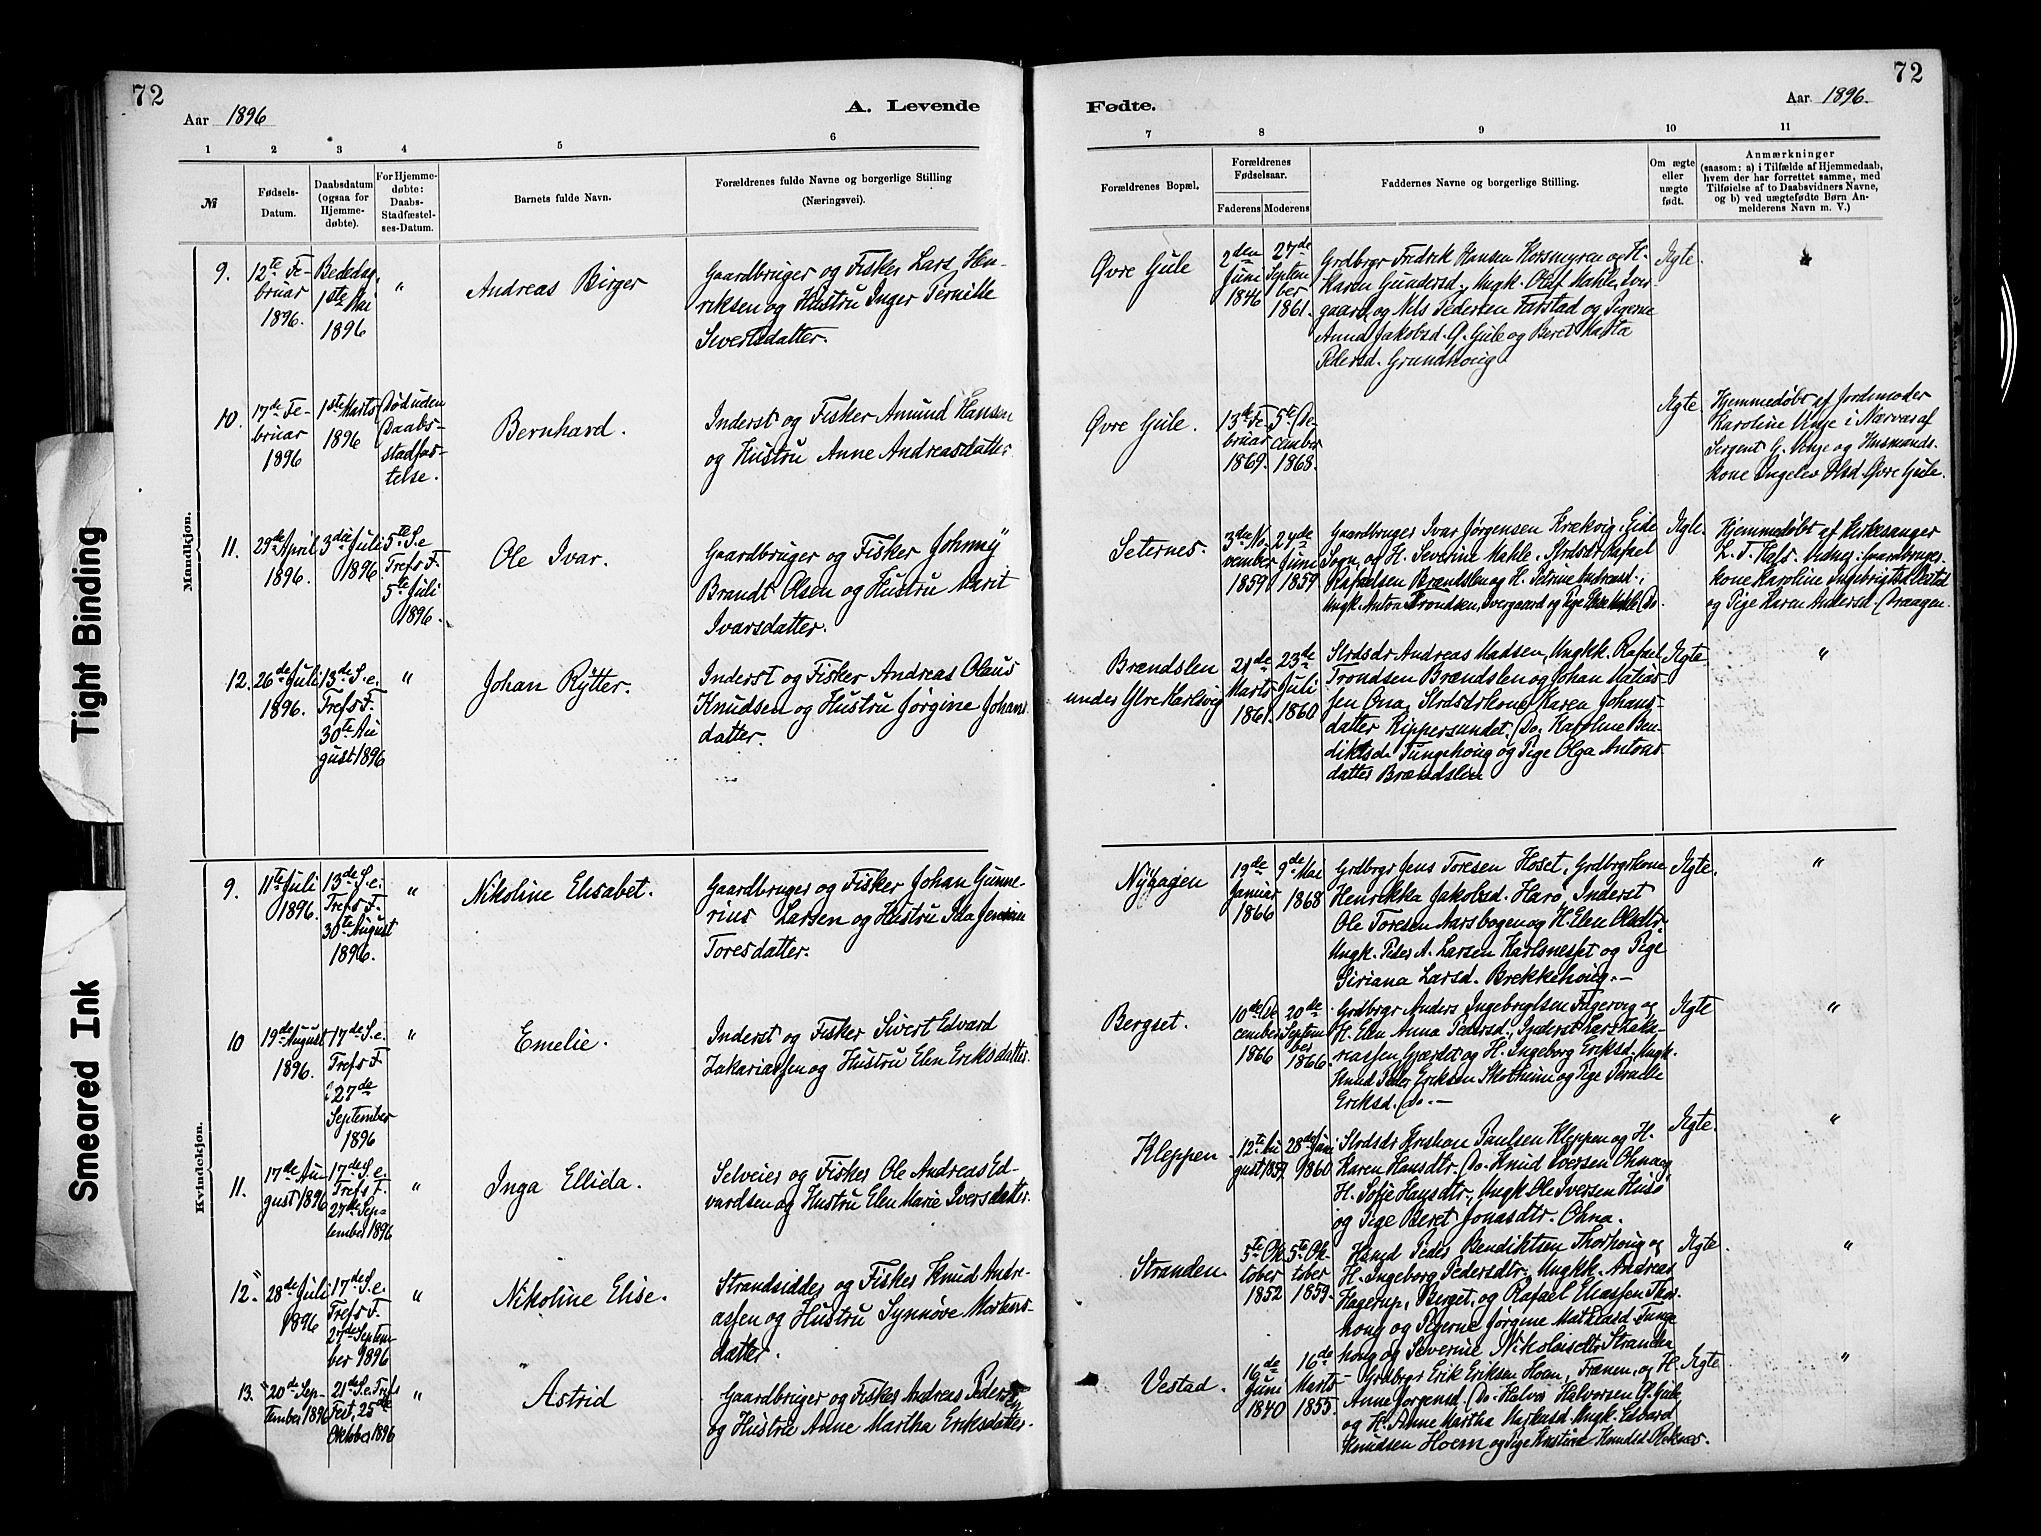 72
Aar 1896
A. Levende
1 2 3 4 5 6
№
Fødsels-
Datum.
Daabsdatum
(ogsaa for
Hjemme-
døbte).
For Hjemme-
døbte:
Daabs-
Stadfæstel-
ses-Datum.
Barnets fulde Navn.
Forældrenes fulde Navne og borgerlige Stilling
(Næringsvei).
Mandkjøn.
9.
12te Fe-
bruar
1896.
Bededag,
1ste Mai
1896
"
Andreas Birger
Gaardbruger og Fisker Lars Hen-
riksen og Hustru Inger Pernille
Sivertsdatter.
10.
17de Fe-
bruar
1896
1ste Marts
1896
Død uden
Daabs-
stadfæs-
telse.
Bernhard.
Inderst og Fisker Amund Hansen
og Hustru Anne Andreasdatter
11.
29de April
1896.
3die Juli
1896
5te S. e
Trefs F.
5te Juli
1896.
Ole Ivar.
Gaardbruger og Fisker Johnny
Brandt Olsen og Hustru Marit
Ivarsdatter.
12.
26de Juli
1896.
13de S. e.
Trefs F.
30te Au-
gust 1896
"
Johan Rytter.
Inderst og Fisker Andreas Olaus
Knudsen og Hustru Jørgine Johans
datter.
Kvindekjøn.
9.
11te Juli
1896.
13de S. e.
Trefs F.
30te August
1896.
"
Nikoline Elisabet.
Gaardbruger og Fisker Johan Gunne-
rius Larsen og Hustru Ida Jensine
Toresdatter.
10
19de August
1896.
17de S. e.
Trefs F.
27de
September
1896
"
Emelie.
Inderst og Fisker Sivert Edvard
Zakariassen og Hustru Elen Eriksdatter
11.
17de Au-
gust 1896
17de S. e.
Trefs F.
27de Sep-
tember 1896
"
Inga Ellida.
Selveier og Fisker Ole Andreas Ed-
vardsen og Hustru Elen Marie Iversdatter.
12.
28de Juli
1896
17de S. e.
Trefs F.
27de Septem-
ber 1896
"
Nikoline Elise.
Strandsidder og Fisker Knud Andre-
assen og Hustru Synnøve Mortens
datter.
13.
20de Sep-
tember 1896
21de S. e. Trefs
Fest, 25de
Oktober 1896
"
Astrid
Gaardbruger og Fisker Andreas Peders
en
og Hustru Anne Martha Eriksdatter.
72
Fødte.
Aar 1896.
7 8 9 10 11
Forældrenes Bopæl.
Forældrenes
Fødselsaar.
Faderens Moderens
Faddernes Navne og borgerlige Stilling.
Om ægte
eller
uægte
født.
Anmærkninger
(saasom: a) i Tilfælde af Hjemmedaab,
hvem der har forrettet samme, med
Tilføielse af to Daabsvidners Navne,
og b) ved uægtefødte Børn An-
melderens Navn m. V.)
Øvre Gule
2den
Juni
1846
27de
Septem
ber
1861.
Grdbrgr Fredrik Hansen Korsmyren og H.
Karen Gundersd., Ungk. Olaf Mahle, Iver
gaard, og Nils Pedersen Farstad og Pigerne
Anna Jakobsd. Ø. Gule og Beret Marta
Pedersd. Grundhoug
Ægte.
Øvre Gule.
13de Fe-
bruar
1869.
5te De-
cember
1868.
Ægte
Hjemmedøbt af Jordemoder
Karoline Unge i Nærvær af
Sergent G. Unge og Husmands-
kone Ingelev Olsd. Øvre Gule.
Seternes.
3die No-
vember
1859
24de
Juni
1859
Gaardbruger Ivar Jørgensen Krækvig, Eide
Sogn, og H. Severine Mahle. Strdsdr Rafael
Rafaelsen Brændslen og H. Petrine Andreasd.;
Ungk. Anton Trondsen, Ivergaard og Pige Mahle Do.
Ægte
Hjemmedøbt af Kirkesanger
Gaardbruger
kone Karoline Ingebrigtsd. Vestad
og Pige Karen Andersd. Draagen.
Brændslen
under Ytre Harlsvig
21de
Marts
1861.
23de
Juli
1860
Strdsdr Andreas Madsen, Ungkk. Rafael
Trondsen Brændslen og Johan Matias-
sen Ona, Strdsdrkone Karen Johans-
datter Kippersundet. Do. Karoline Ben-
diktsdr Tungehoug og Pige Olga Antons
datter Brændslen
Ægte
"
Nyhagen
19de
Januar
1866
9de Mai
1868
Grdbrgr Jens Toresen Hoset, Grdbrgrkone
Henrikka Jakobsd. Harø, Inderst
Ole Toresen Aarsbogen og H. Elen Olsdtr.
Ungk. Peder A. Larsen Karlsneset og Pige
Siriana Larsd. Brekkehoug.—
Ægte.
"
Bergset.
10de De-
cember
1866
20de
Septem
ber
1866.
Grdbrgr Anders Ingebrigtsen Fagervig og
H. Elen Anna Pedersd., Inderst Lars Zaka-
riassen Gjærdet og H. Ingeborg Eriksd. Ungk.
Knud Peder Eriksen Skotheim og Pige
Eriksd. Do.—
Ægte
"
Kleppen.
12te Au-
gust 1859
28de Juni
1860
Strdsdr Kristian Paulsen Kleppen og H.
Karen Hansdtr. Do. Knud Iversen Ohna og
H. Sofie Hansdtr., Ungk. Ole Iversen Husø
og Pige Beret Jonasdtr. Ohna.
Ægte.
"
Stranden.
5te Ok-
tober
1852
5te Ok-
tober
1859.
Hsmd Peder Bendiktsen Thorhoug og
H. Ingeborg Pedersdtr., Ungkk. Andreas
Hagerup, Berget, og Rafael Eliassen Thor-
houg og Pigerne Jørgine Matiasd. Tunge
houg og Severine Nikolaisdtr Stranden
Ægte
"
Vestad.
16de
Juni
1840
16de
Marts
1855.
Grdbrgr Erik Eriksen Hoem, Frænen, og H.
Anne Jørgensd. Do. Halvor Halvorsen Ø. Gule
og H. Anne Martha Markusd. Ungk. Edvard
Knudsen Hoem og Pige Kristine Knudsd.
Ægte
"
Tight Binding
Smeared Ink